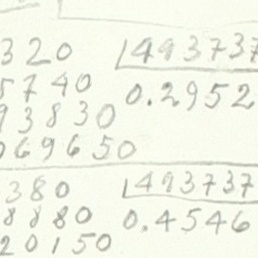 320 493737
5740 0.2952
93830
69650
380 493737
8880 0.4546
20150